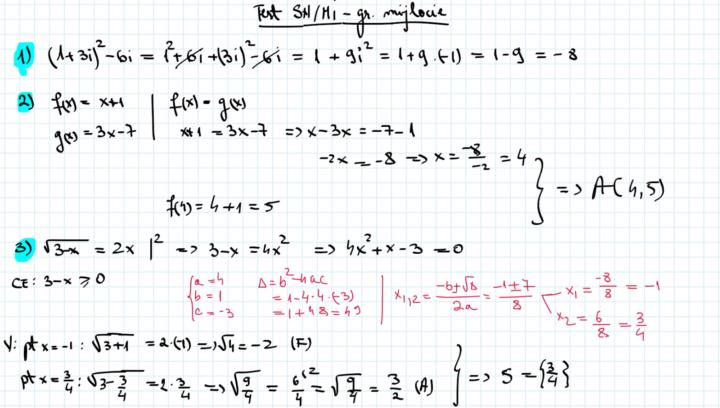 Test SN/M1 - gr. mijlocie
1) (1+3i)² - 6i = 1² + 6i + (3i)² - 6i = 1 + 9i² = 1 + 9·(-1) = 1 - 9 = -8
2) f(x) = x+1 | f(x) = g(x)
g(x) = 3x-7 | x+1 = 3x-7 => x-3x = -7-1
-2x = -8 => x = -8/-2 = 4
f(4) = 4+1 = 5 } => A(4,5)
3) √3-x = 2x |² => 3-x = 4x² => 4x²+x-3 = 0
CE: 3-x ≥ 0
{ a = 4 Δ = b²-4ac
b = 1 = 1-4·4·(-3)
c = -3 = 1+48 = 49
x1,2 = -b±√Δ/2a = -1±7/8
x1 = -8/8 = -1
x2 = 6/8 = 3/4
V: pt x = -1: √3+1 = 2·(-1) => √4 = -2 (F)
pt x = 3/4: √3-3/4 = 2·3/4 => √9/4 = 6/4 = √9/4 = 3/2 (A) } => S = {3/4}